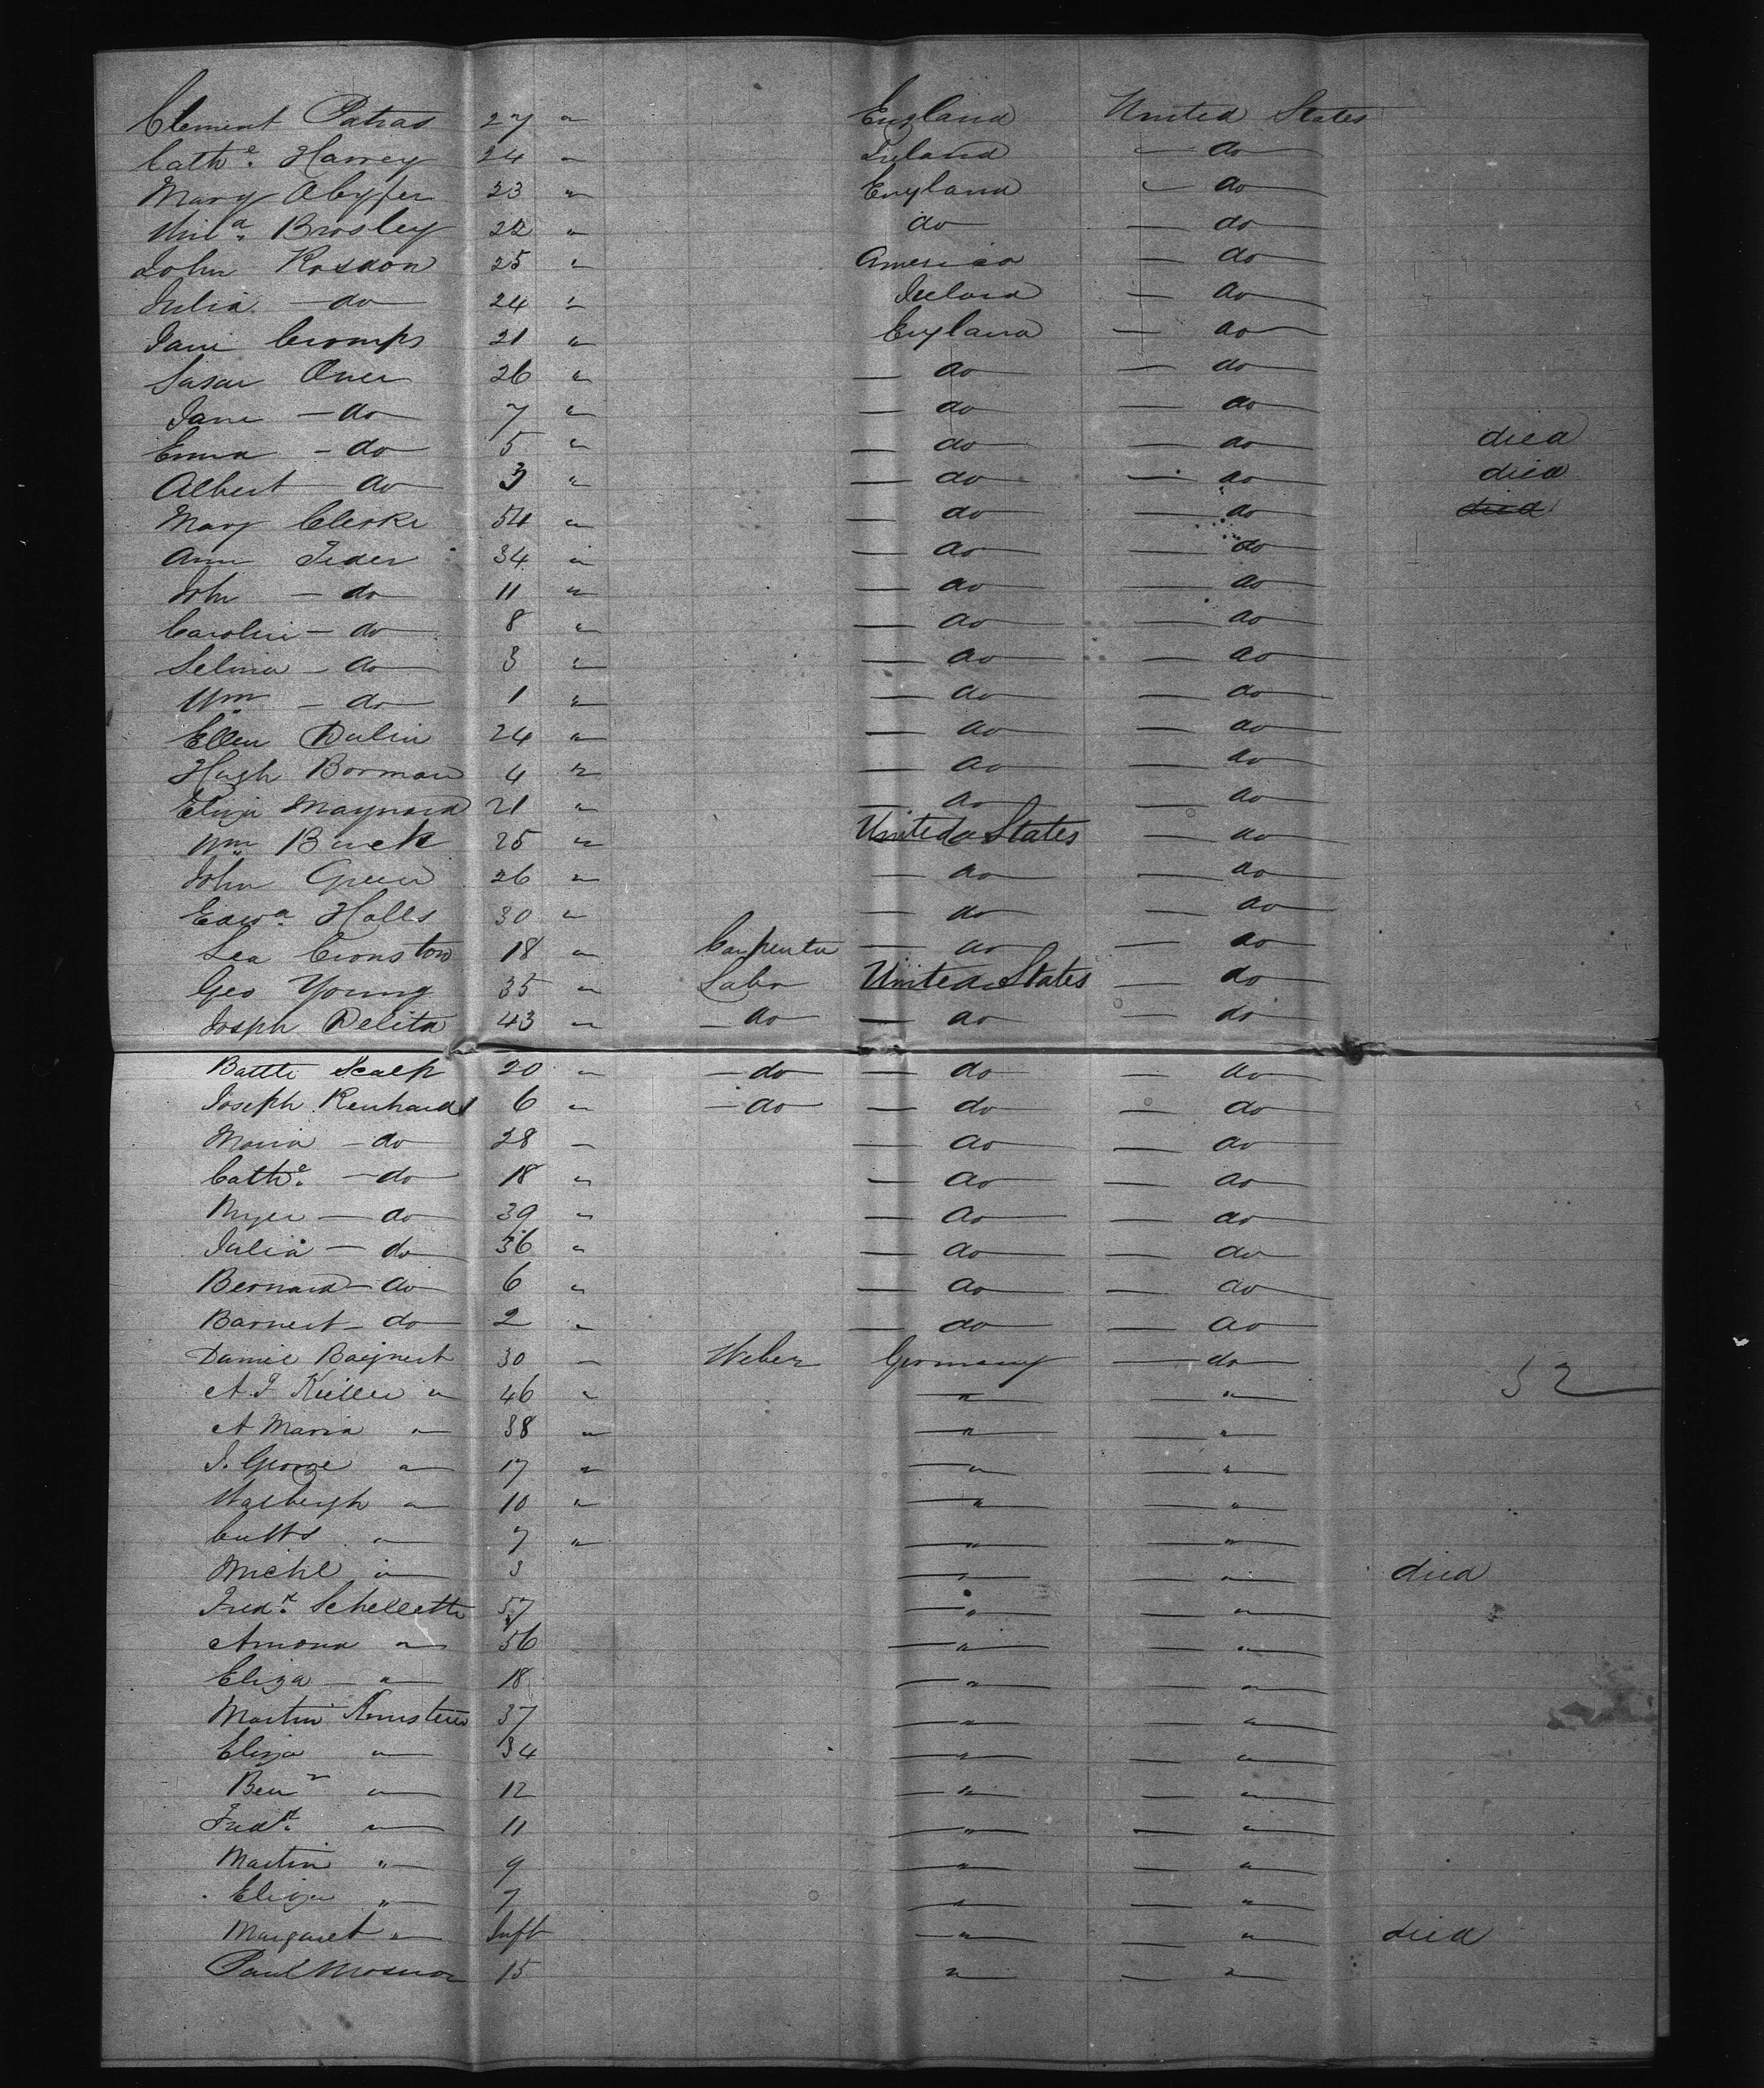 Clement Patras 27 " England United States
Cathe. Harvey 24 " Ireland — do —
Mary 23 " England — do
Brosley 22 " do — do
John Rosdon 25 " America — do
Julia — do 24 " Ireland — do
Jane Cromps 21 " England — do
Susan Oner 26 " — do — do
Jane — do 7 " — do — do
Emma — do 5 " — do — do died
Albert — do 3 " — do — do died
Mary Clerke 54 " — do — do died
Ann Feder 34 " — do — do
John — do 11 " — do — do
Carolin — do 8 " — do — do
Selina — do 3 " — do — do
Wm — do 1 " — do — do
Ellen Dulin 24 " — do — do
Hugh Borman 4 " — do — do
Eliza Maynard 21 " — do — do
Wm Buck 25 " United States — do
John Green 26 " — do — do
Edwd. Halls 30 " — do — do
Lea Cronston 18 " Carpenter — do — do
Geo Young 35 " Labr United States — do
Josph Delita 43 " — do — do — do
Battti Scalp 20 " — do — do — do
Joseph Renhardt 6 " — do — do — do
Maria — do 28 " — do — do
Cathe. — do 18 " — do — do
— do 39 " — do — do
Julia — do 36 " — do — do
Bernard — do 6 " — do — do
Barnert — do 2 " — do — do
Daniel Baejnert 30 " Weber Germany — do
A. J. Keiller " 46 " " " 52
A Maria " 38 " " "
J. George " 17 " " "
Walbergh " 10 " " "
Cutts " 7 " " "
Michl " 3 " " died
Fredk. Schellette 57 " "
Amona " 56 " "
Eliza " 18 " "
Martin Kunstein 37 " "
Eliza " 34 " "
Benn " 12 " "
Fredk. " 11 " "
Martin " 9 " "
Eliza " 7 " "
Margaret " Inft " " died
Paul 15 " "